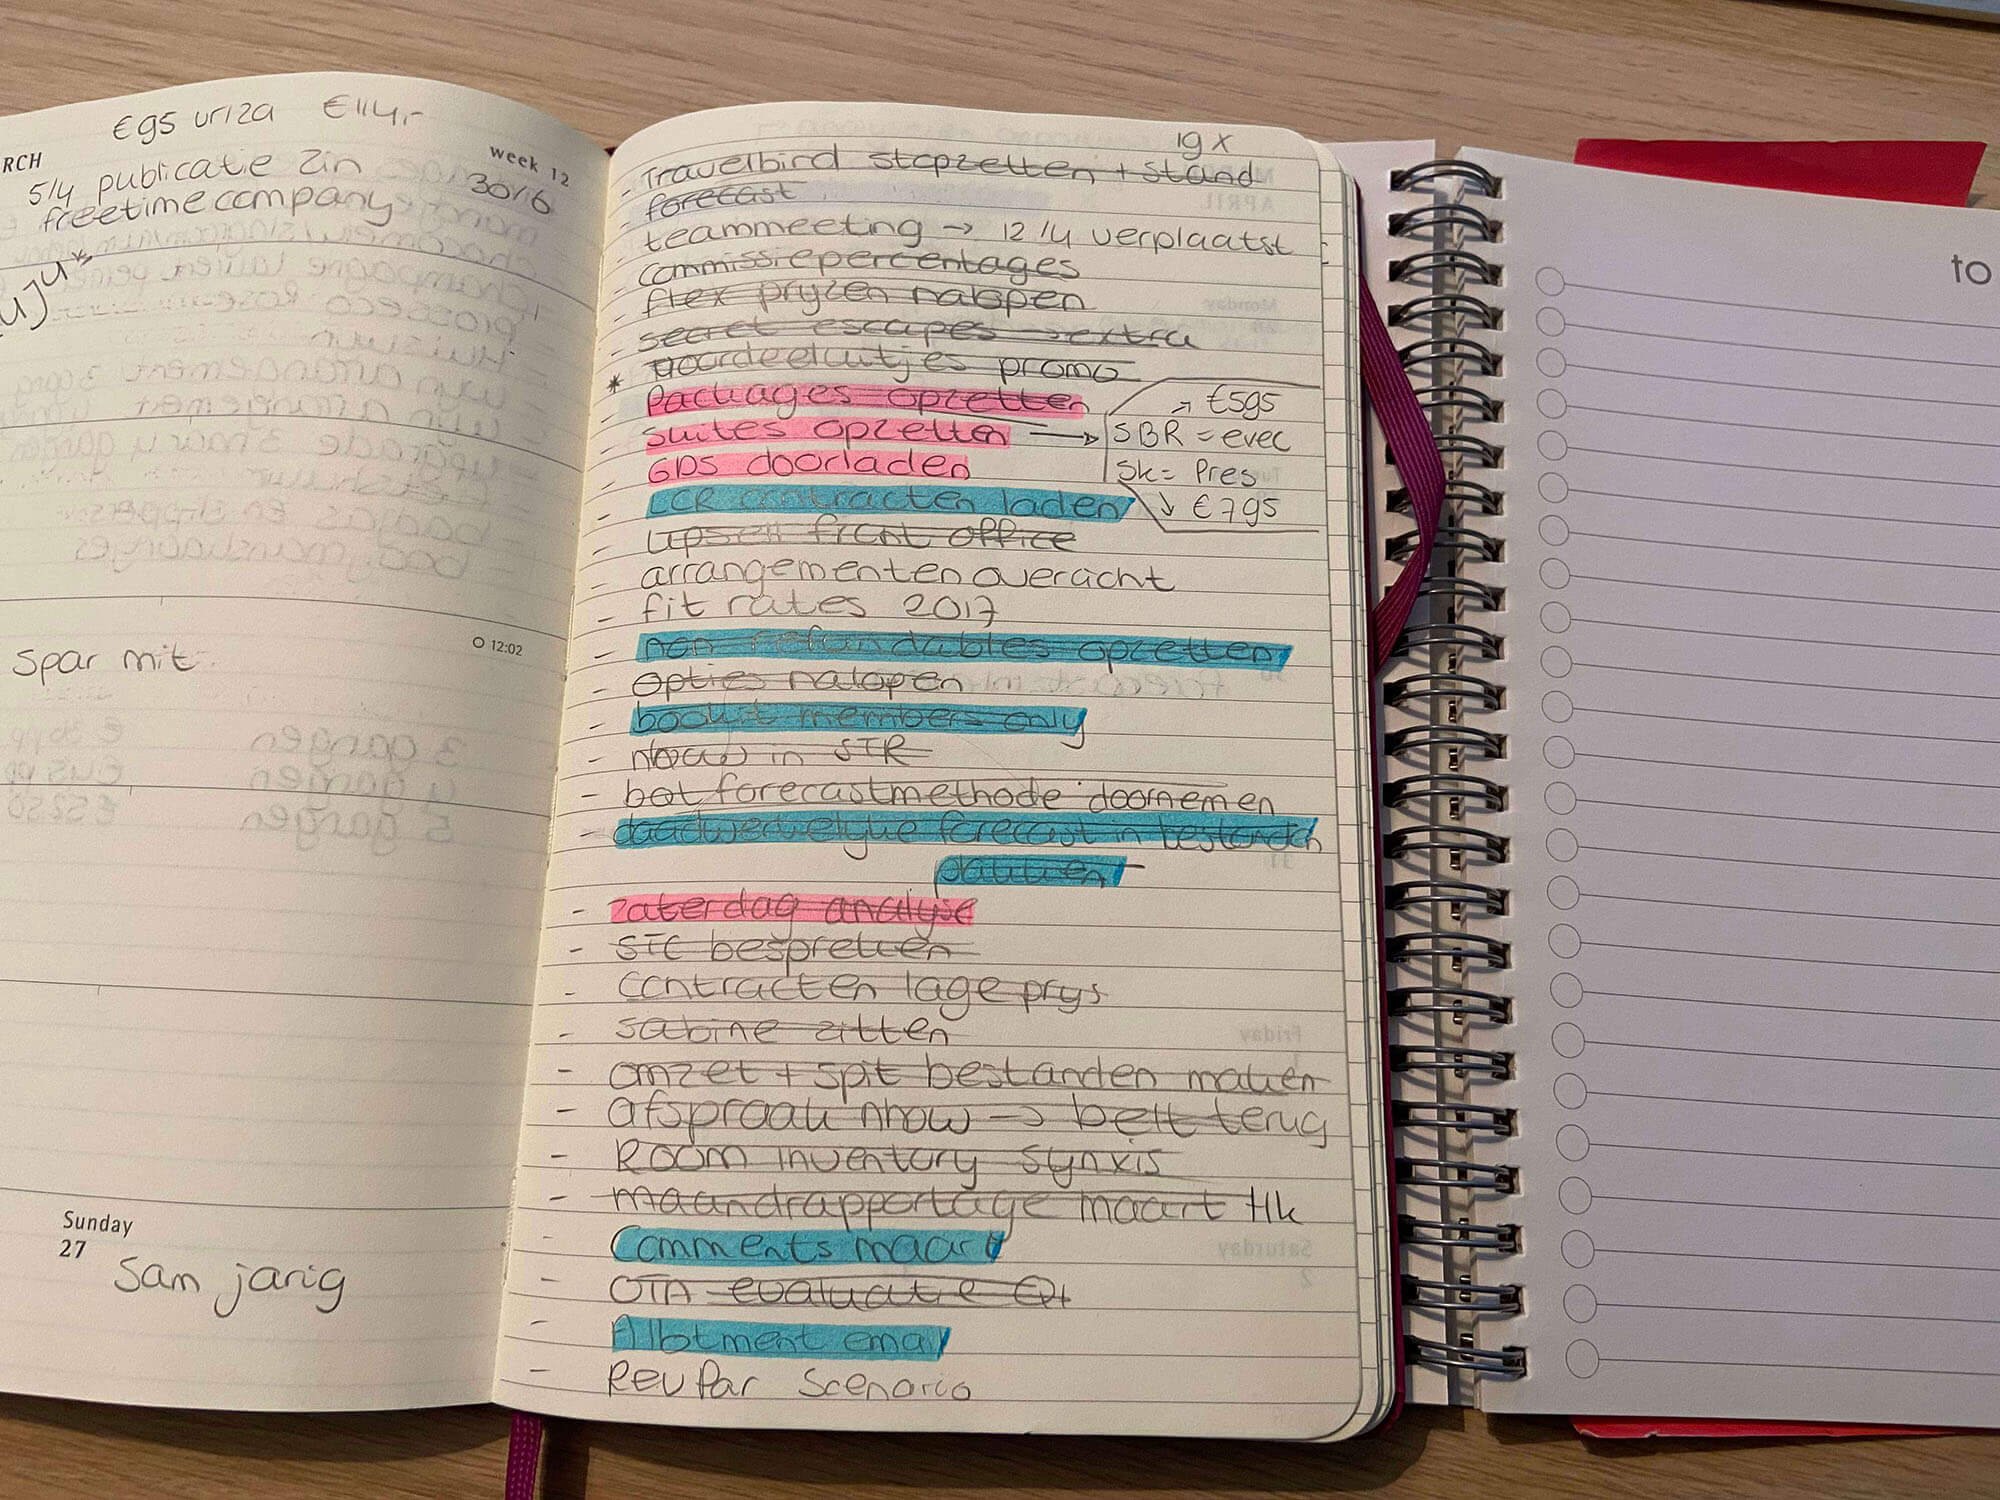 €95 uriza €114,-
RCH
week 12
5/4 publicatie zin
30/6
freetime company
Spar mit
12:02
Sunday
27
Sam jarig
19 x
- Travelbird stopzetten + stand
forecast
- teammeeting → 12/4 verplaatst
- commissiepercentages
- flex pryzen nalopen
- secret escapes → extra
* voordeeluitjes promo
- Packages opzetten
- suites opzetten →
- GDS doorladen
→ €595
SBR = evec
SK = Pres
↓ €795
- CCR contracten laden
- upsell front office
- arrangementen overzicht
- fit rates 2017
- non refundables opzetten
- opties nalopen
- bookit members only
- nhow in STR
- bot forecastmethode doornemen
- daadwerkelyke forecast in bestand
- zaterdag analyse
- STC bespreken
- contracten lage prys
- sabine zitten
- omzet + spit bestanden maken
- afspraak nhow → belt terug
- Room inventory synxis
- maandrapportage maart HK
- Comments maart
- OTA evaluatie Q1
- Allotment email
- RevPar Scenario
to